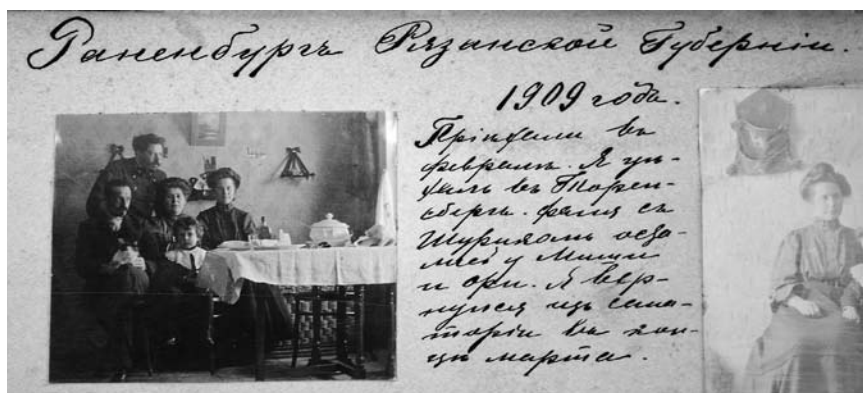 Раненбургъ Рязанской Губерніи.
1909 года.
Пріѣхали въ
февралѣ. Я уѣ-
халъ въ Торен-
сбергъ. Фаня съ
Шурикомъ оста-
лись у Миши
и Я вер-
нулся изъ сана-
торіи въ кон-
цѣ марта.